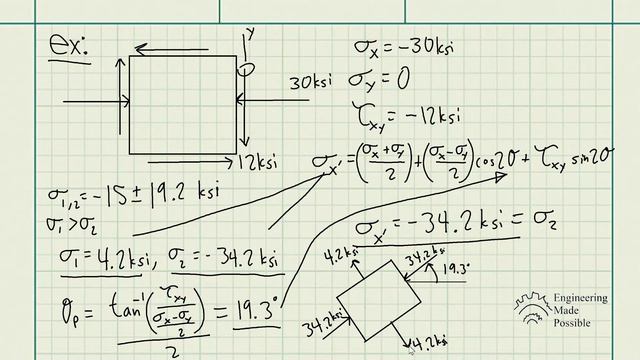 ex:
y
30ksi
12ksi
σx = -30ksi
σy = 0
τxy = -12ksi
σx' = (σx+σy/2) + (σx-σy/2) cos2θ + τxy sin2θ
σ1,2 = -15 ± 19.2 ksi
σ1 > σ2
σx' = -34.2ksi = σ2
σ1 = 4.2ksi, σ2 = -34.2ksi
θp = tan⁻¹(τxy/(σx-σy/2))/2 = 19.3°
4.2ksi
34.2ksi
19.3°
34.2ksi
4.2ksi
Engineering
Made
Possible